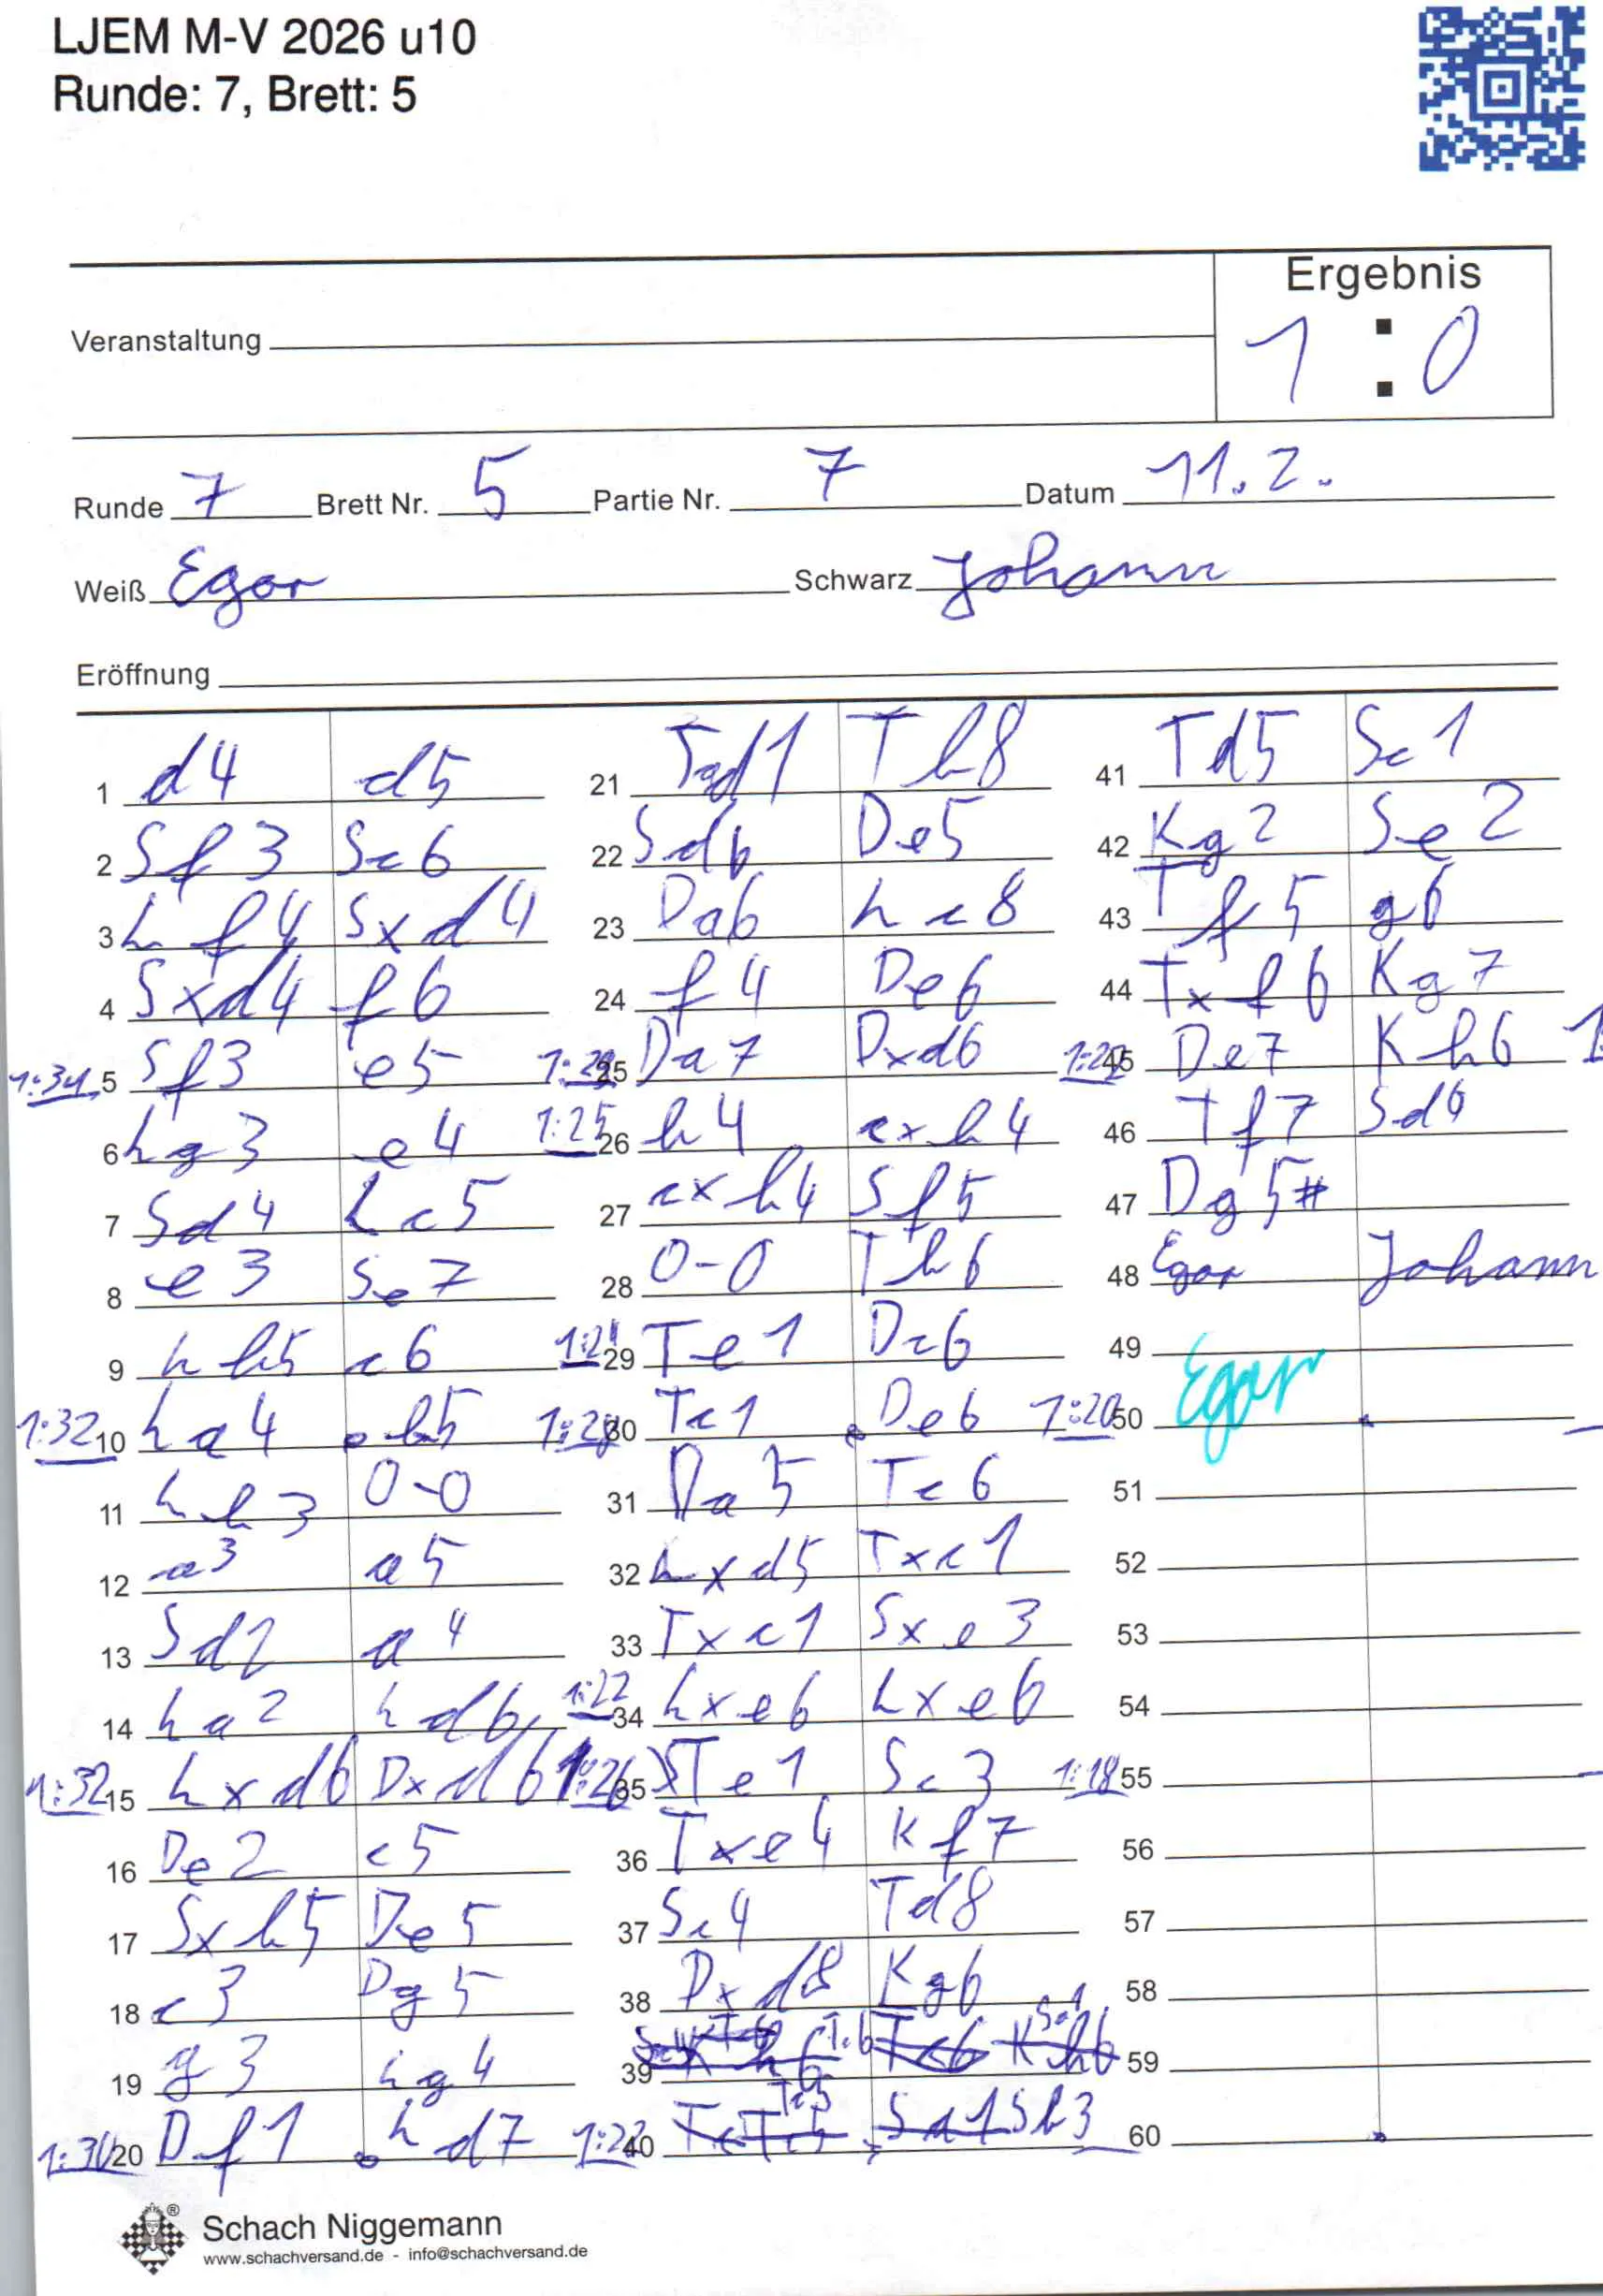 LJEM M-V 2026 u10
Runde: 7, Brett: 5
Ergebnis
Veranstaltung
1 : 0
Runde 7 Brett Nr. 5 Partie Nr. 7 Datum 11.2.
Weiß Egor Schwarz Johann
Eröffnung
1 d4 d5
2 Sf3 Sc6
3 Lf4 Sxd4
4 Sxd4 f6
1:34 5 Sf3 e5
6 Lg3 e4
7 Sd4 Lc5
8 e3 Se7
9 Lb5 c6
1:32 10 La4 b5
11 Lb3 0-0
12 a3 a5
13 Sd2 a4
14 La2 Ld6
1:32 15 Lxd6 Dxd6
16 De2 c5
17 Sxb5 De5
18 c3 Dg5
19 g3 Lg4
1:30 20 Df1 Ld7
21 Tad1 Tb8
22 Sd6 De5
23 Da6 Lc8
24 f4 De6
25 Da7 Dxd6
1:25 26 b4 cxb4
27 cxb4 Sf5
28 0-0 Tb6
29 Te1 Dc6
30 Tc1 De6
31 Da5 Tc6
32 Lxd5 Txc1
33 Txc1 Sxe3
1:22 34 Lxe6 Lxe6
1:26 35 Te1 Sc3
36 Txe4 Kf7
37 Sc4 Td8
38 Dxd8 Kg6
39
40 Sb3
41 Td5 Sc1
42 Kg2 Se2
43 Tf5 g6
44 Txf6 Kg7
45 De7 Kh6
46 Tf7 Sd6
47 Dg5#
48 Egor Johann
49
1:20 50 Egor
51
52
53
54
1:18 55
56
57
58
59
60
Schach Niggemann
www.schachversand.de - info@schachversand.de